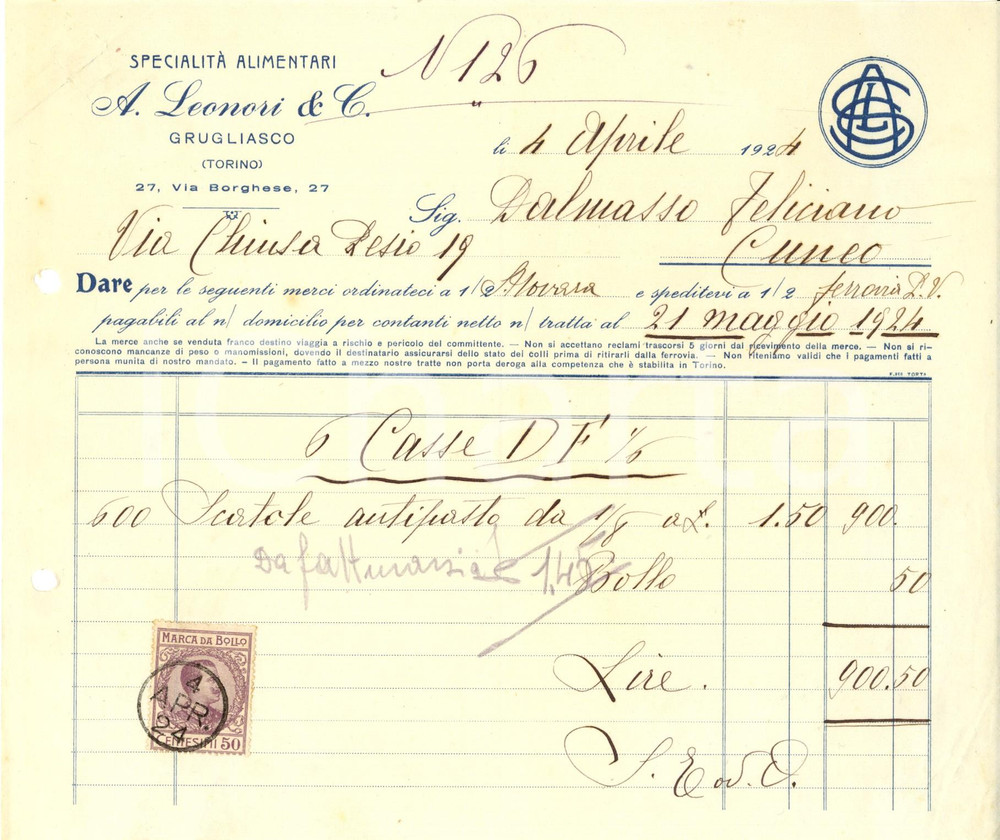 N 126
SPECIALITÀ ALIMENTARI
A. Leonori & C.
GRUGLIASCO
(TORINO)
27, Via Borghese, 27
li 4 Aprile 1924
Sig. Dalmasso Feliciano
Via Chiusa Pesio 19 Cuneo
Dare per le seguenti merci ordinateci a 1/2 Novara e speditevi a 1/2 ferrovia P.V.
pagabili al n/ domicilio per contanti netto n/ tratta al 21 maggio 1924
La merce anche se venduta franco destino viaggia a rischio e pericolo del committente. — Non si accettano reclami trascorsi 5 giorni dal ricevimento della merce. — Non si ri-
conoscono mancanze di peso o manomissioni, dovendo il destinatario assicurarsi dello stato dei colli prima di ritirarli dalla ferrovia. — Non riteniamo validi che i pagamenti fatti a
persona munita di nostro mandato. – Il pagamento fatto a mezzo nostre tratte non porta deroga alla competenza che è stabilita in Torino.
F.lli TORTA
6 Casse D F 1/6
600 Scatole antipasto da 1/8 a L. 1.50 900.
Da fatturarsi a 1,45
Bollo 50
MARCA DA BOLLO
4
APR.
24
CENTESIMI 50
Lire. 900.50
S. E. od O.